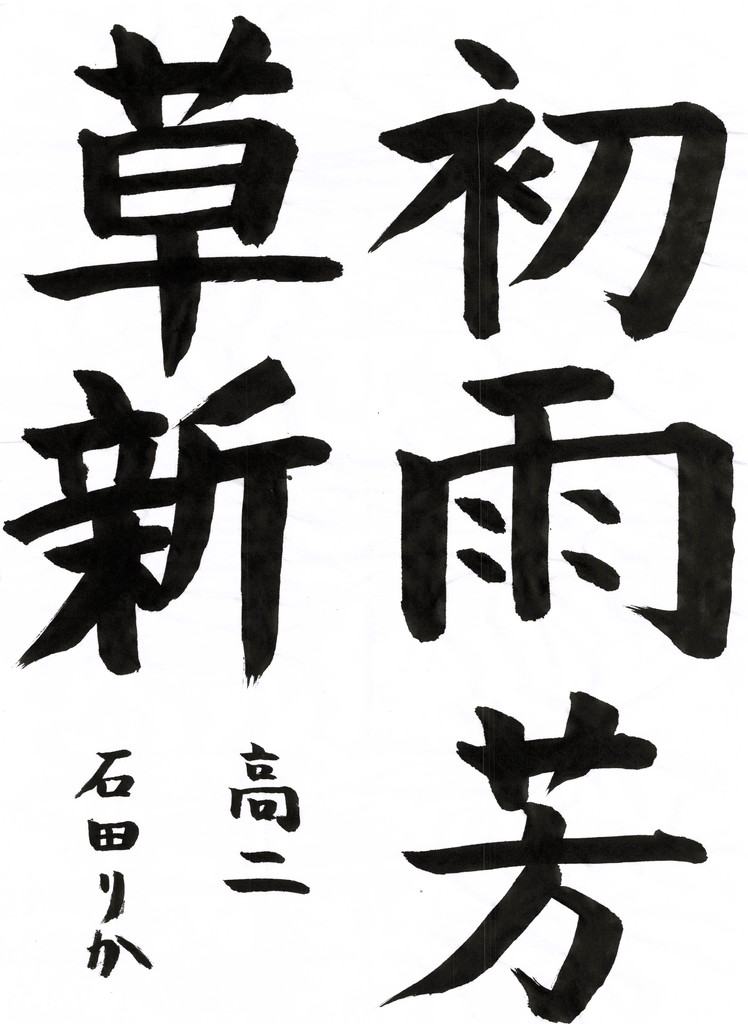 初雨芳
草新
高二
石田りか